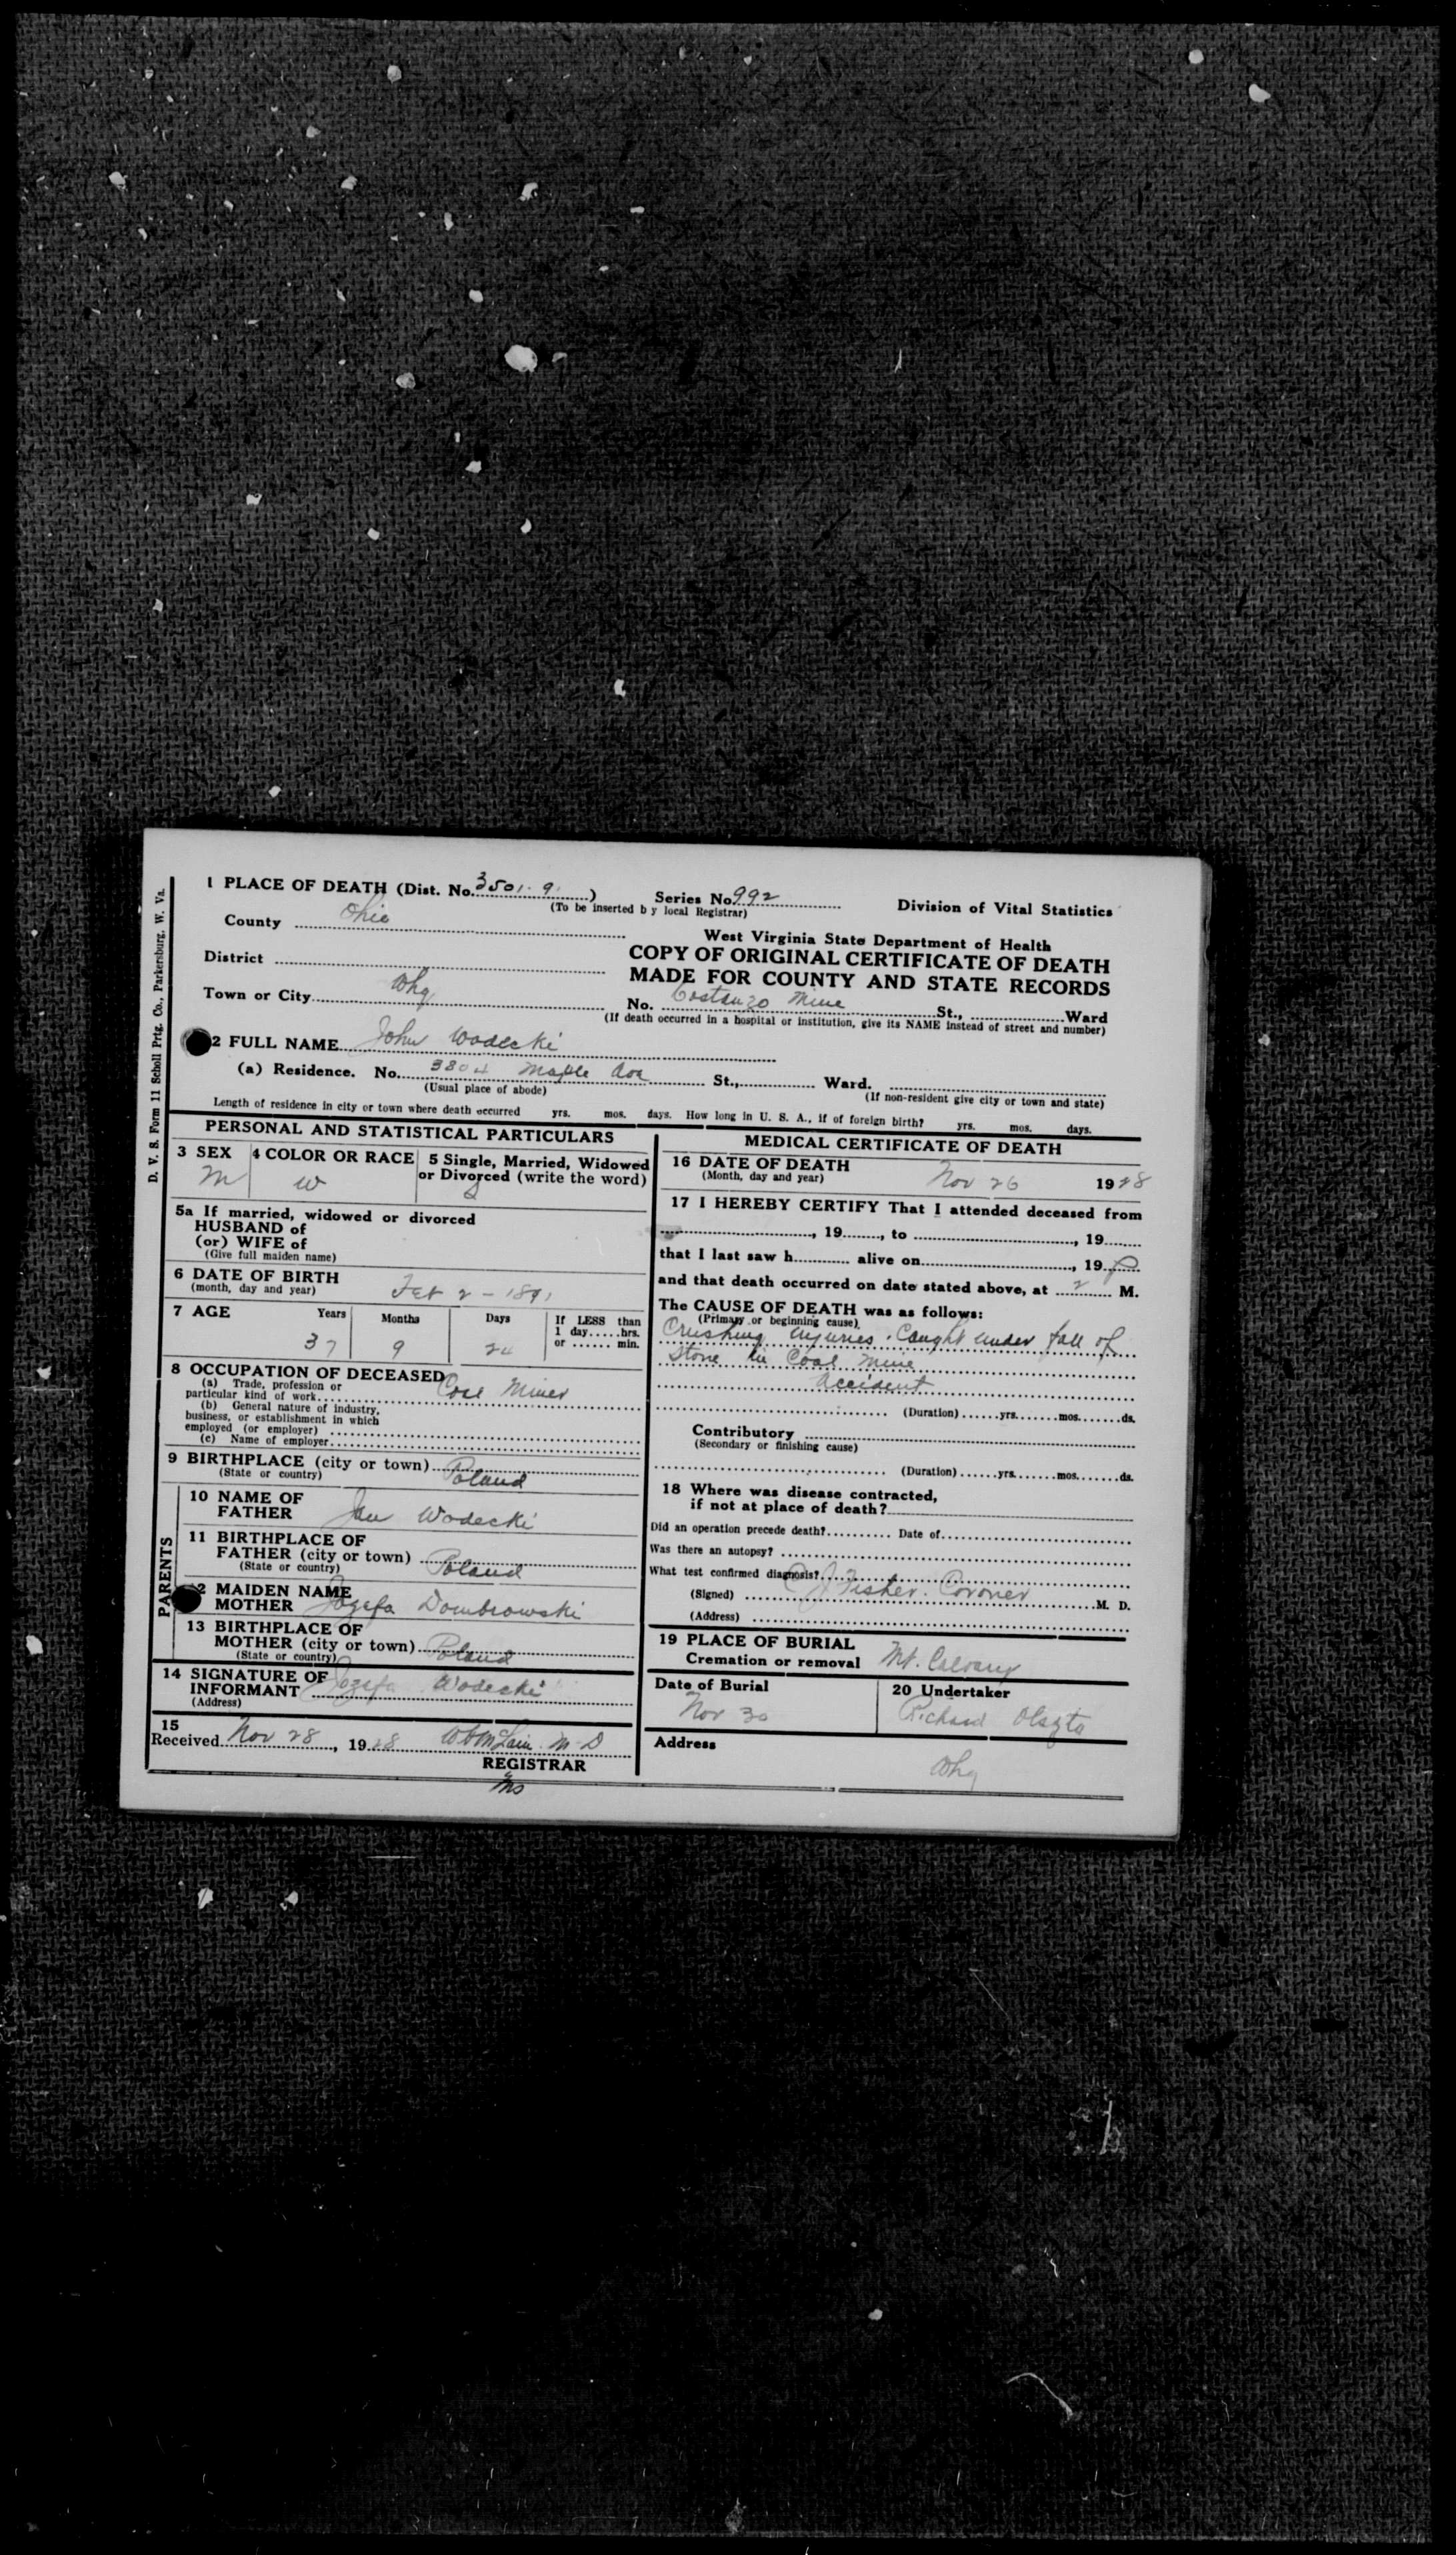 D. V. S. Form 11 Scholl Prtg. Co., Parkersburg, W. Va.
1 PLACE OF DEATH (Dist. No. 3501-9)
Series No. 992
(To be inserted by local Registrar)
Division of Vital Statistics
County Ohio
West Virginia State Department of Health
COPY OF ORIGINAL CERTIFICATE OF DEATH
MADE FOR COUNTY AND STATE RECORDS
District
Town or City Whg
No. Costanzo Mine St., Ward
(If death occurred in a hospital or institution, give its NAME instead of street and number)
2 FULL NAME John Wodecki
(a) Residence. No. 3804 Maple Ave St., Ward.
(Usual place of abode)
(If non-resident give city or town and state)
Length of residence in city or town where death occurred yrs. mos. days. How long in U. S. A., if of foreign birth? yrs. mos. days.
PERSONAL AND STATISTICAL PARTICULARS
3 SEX
M
4 COLOR OR RACE
W
5 Single, Married, Widowed
or Divorced (write the word)
5a If married, widowed or divorced
HUSBAND of
(or) WIFE of
(Give full maiden name)
6 DATE OF BIRTH
(month, day and year) Feb 2 - 1891
7 AGE Years Months Days
If LESS than
1 day.....hrs.
or ...... min.
37 9 24
8 OCCUPATION OF DECEASED
(a) Trade, profession or
particular kind of work Coal Miner
(b) General nature of industry,
business, or establishment in which
employed (or employer)
(c) Name of employer
9 BIRTHPLACE (city or town) Poland
(State or country)
PARENTS
10 NAME OF
FATHER Jan Wodecki
11 BIRTHPLACE OF
FATHER (city or town) Poland
(State or country)
2 MAIDEN NAME
MOTHER Jozefa Dombrowski
13 BIRTHPLACE OF
MOTHER (city or town) Poland
(State or country)
14 SIGNATURE OF
INFORMANT Jozefa Wodecki
(Address)
15
Received Nov 28, 1928 W McLain M D
REGISTRAR
MEDICAL CERTIFICATE OF DEATH
16 DATE OF DEATH
(Month, day and year) Nov 26 1928
17 I HEREBY CERTIFY That I attended deceased from
, 19......, to , 19......
that I last saw h.......... alive on , 19
and that death occurred on date stated above, at 2 P M.
The CAUSE OF DEATH was as follows:
(Primary or beginning cause)
Crushing injuries. Caught under fall of
stone in Coal Mine
Accident
(Duration) ......yrs.......mos.......ds.
Contributory
(Secondary or finishing cause)
(Duration) ......yrs.......mos.......ds.
18 Where was disease contracted,
if not at place of death?
Did an operation precede death?.......... Date of
Was there an autopsy?
What test confirmed diagnosis?
(Signed) C J Fisher. Coroner M. D.
(Address)
19 PLACE OF BURIAL
Cremation or removal Mt. Calvary
Date of Burial
Nov 30
20 Undertaker
Richard Olszta
Address
Whg